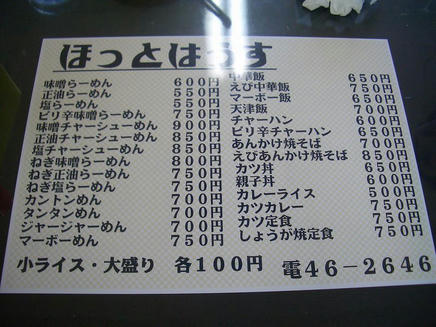 ほっとはうす
味噌らーめん 600円
正油らーめん 550円
塩らーめん 550円
ピリ辛味噌らーめん 750円
味噌チャーシューめん 900円
正油チャーシューめん 850円
塩チャーシューめん 850円
ねぎ味噌らーめん 800円
ねぎ正油らーめん 750円
ねぎ塩らーめん 750円
カントンめん 700円
タンタンめん 700円
ジャージャーめん 750円
マーボーめん 750円
中華飯 650円
えび中華飯 750円
マーボー飯 650円
天津飯 700円
チャーハン
ピリ辛チャーハン 650円
あんかけ焼そば 700円
えびあんかけ焼そば 850円
カツ丼 650円
親子丼
カレーライス 500円
カツカレー 750円
カツ定食 750円
しょうが焼定食 750円
小ライス・大盛り 各100円 電46-2646